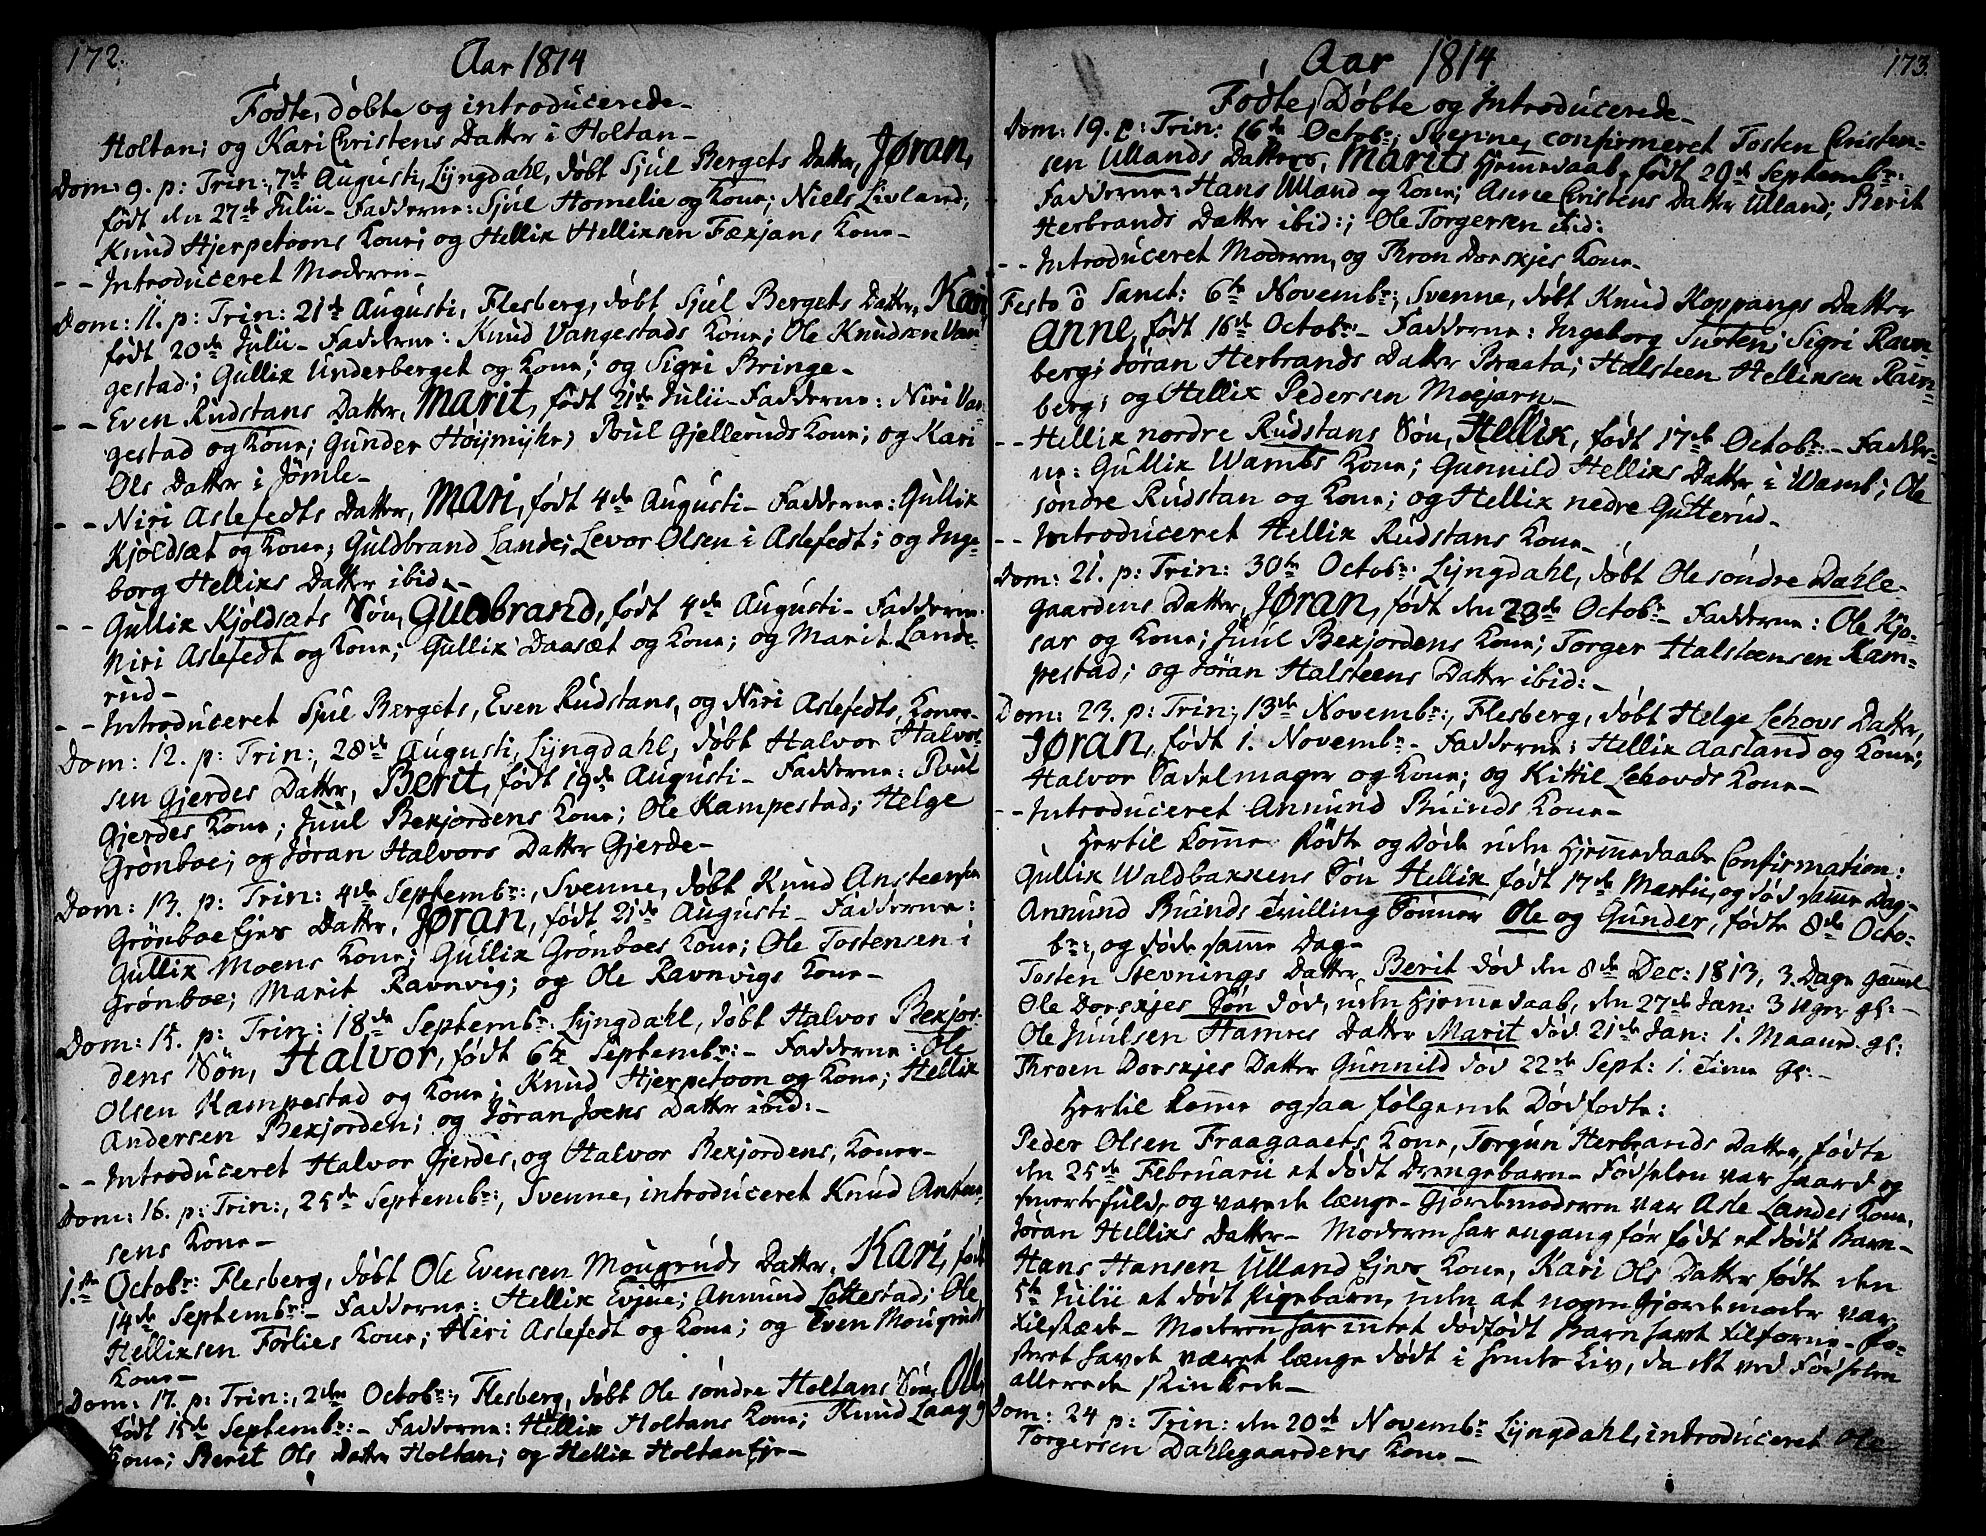 172.
Aar 1814
Fødte, døbte og introducerede-
Holtan; og Kari Christens Datter i Holtan-
Dom: 9. p: Trin:, 7de Augusti, Lÿngdahl, døbt Sjul Bergets Datter, Jøran,
født den 27de Julii- Fadderne: Sjul Homelie og Kone; Niels Livland;
Knud Hjerpetoons Kone; og Hellik Helliksen Fæxjans Kone-
- - Introduceret Moderen-
Dom: 11. p: Trin: 21de Augusti, Flesberg, døbt Sjul Bergets Datter, Kari,
født 20de Julii- Fadderne: Knud Vangestads Kone; Ole Knudsen Van-
gestad; Gullik Underberget og Kone; og Sigri Bringe-
- - Even Rudstans Datter, Marit, født 21de Julii- Fadderne: Niri Van-
gestad og Kone; Gunder Høÿmÿhr; Poul Gjelleruds Kone; og Kari
Ols Datter i Jømle-
- - Niri Aslefedts Datter, Mari, født 4de Augusti- Fadderne: Gullik
Kjoldsæt og Kone; Guldbrand Lande; Levor Olsen i Aslefedt; og Inge-
borg Helliks Datter ibid.-
- - Gullik Kjoldsæts Søn, Guldbrand, født 4de Augusti- Fadderne:
Niri Aslefedt og Kone; Gullik Daasæt og Kone; og Marit Lande-
rud-
- - Introduceret Sjul Bergets, Even Rudstans, og Niri Aslefedts, Koner-
Dom: 12. p: Trin:, 28de Augusti, Lÿngdahl, døbt Halvor Halvor-
sen Gjerdes Datter, Berit, født 19de Augusti- Fadderne: Poul
Gjerdes Kone; Juul Bexjordens Kone; Ole Kampestad; Helge
Grønboe; og Jøran Halvors Datter Gjerde-
Dom: 13. p: Trin: 4de Septembr:, Svenne, døbt Knud Ansteensen
Grønboe Ejes Datter, Jøran, født 21de Augusti- Fadderne:
Gullik Moens Kone; Gullik Grønboes Kone; Ole Tostensen i
Grønboe; Marit Ravnvig; og Ole Ravnvigs Kone-
Dom: 15. p: Trin: 18de Septembr: Lÿngdahl, døbt Halvor Bexjor-
dens Søn, Halvor, født 6te Septembr:- Fadderne: Ole
Olsen Kampestad og Kone; Knud Hjerpetoon og Kone; Hellik
Andersen Bexjorden; og Jøran Joens Datter ibid:-
- - Introduceret Halvor Gjerdes, og Halvor Bexjordens, Koner-
Dom: 16. p: Trin:, 25de Septembr:, Svenne, introduceret Knud Ansteen-
sens Kone-
1.ste Octobr: Flesberg, døbt Ole Evensen Mougruds Datter, Kari, født
14de Septembr:- Fadderne: Hellik Evjue; Anmund Lættestad; Ole
Helliksen Forlies Kone; Niri Aslefedt og Kone; og Even Mougruds
Kone-
Dom: 17. p: Trin:, 2den Octobr:, Flesberg, døbt Ole søndre Holtans Søn, Ole,
født 15de Septembr:- Fadderne: Hellik Holtans Kone; Knud Laag
Kone; Berit Ols Datter Holtan; og Hellik Holtan Eje-
173.
Aar 1814
Fødte, Døbte og Introducerede-
Dom: 19. p: Trin: 16de Octobr:, Svenne, confirmeret Tosten Christen-
sen Ullands Datters, Marits Hjemmedaab, født 20de Septembr:-
Fadderne: Hans Ulland og Kone; Anne Christens Datter Ulland; Berit
Herbrands Datter ibid:; Ole Torgersen ibid:
- - Introduceret Moderen, og Thron Dorskjes Kone-
Festo o Sanct: 6te Novembr:, Svenne, døbt Knud Koppangs Datter
Anne, født 16de Octobr:- Fadderne: Ingeborg Tusten; Sigri Ravn-
berg; Jøran Herbrands Datter Braata; Halsteen Helliksen Ravn-
berg; og Hellik Pedersen Moejarn-
- - Hellik nordre Rudstans Søn, Hellik, født 17de Octobr:- Fadder-
ne: Gullik Wambs Kone; Gunnild Helliks Datter i Wamb; Ole
søndre Rudstan og Kone; og Hellik nedre Gutterud-
- - Introduceret Hellik Rudstans Kone-
Dom: 21. p: Trin: 30te Octobr: Lÿngdahl, døbt Ole søndre Dahle-
gaardens Datter, Jøran, født den 23de Octobr:- Fadderne: Ole Kjo-
sar og Kone; Juul Bexjordens Kone; Torger Halsteensen Kam-
pestad; og Jøran Halsteens Datter ibid:-
Dom: 23. p: Trin: 13de Novembr:, Flesberg, døbt Helge Lehovs Datter,
Jøran, født 1. Novembr:- Fadderne: Hellik Aasland og Kone;
Halvor Sadelmager og Kone; og Kittil Lehovds Kone-
- - Introduceret Anmund Buinds Kone-
Hertil komme Fødte og Døde uden Hjemmedaabs Confirmation:
Gullik Waldbakkens Søn Hellik, født 17de Martii, og død samme Dag-
Anmund Buinds Tvilling Sønner Ole og Gunder, fødte 8de Octo-
br:, og døde samme Dag-
Tosten Stevnings Datter Berit død den 8de Dec: 1813, 3. Dage gammel
Ole Dorskjes Søn død, uden Hjemmedaab, den 27de Jan: 3 Uger gl:-
Ole Juulsen Hamres Datter Marit død 21de Jan: 1. Maaned. gl:
Throen Dorskjes Datter Gunnild død 22de Sept: 1. Time gl:-
Hertil komme ogsaa følgende Dødfødte:
Peder Olsen Fraagaaets Kone, Torgun Herbrands Datter, fødte
den 25de Februarii et dødt Drengebarn- Fødselen var haard og
smertefuld, og varede længe- Gjordemoderen var Asle Landes Kone,
Jøran Helliks Datter- Moderen har engang før født et dødt Barn-
Hans Hansen Ulland Ejes Kone, Kari Ols Datter fødte den
5te Julii et dødt Pigebarn, uden at nogen Gjordemoder var
tilstæde- Moderen har intet dødfødt Barn havt tilforne- Fo-
steret havde været længe dødt i hendes Liv, da det ved Fødselen
allerede stinkede-
Dom: 24 p: Trin: den 20de Novembr: Lÿngdahl, introduceret Ole
Torgersen Dahlegaardens Kone-